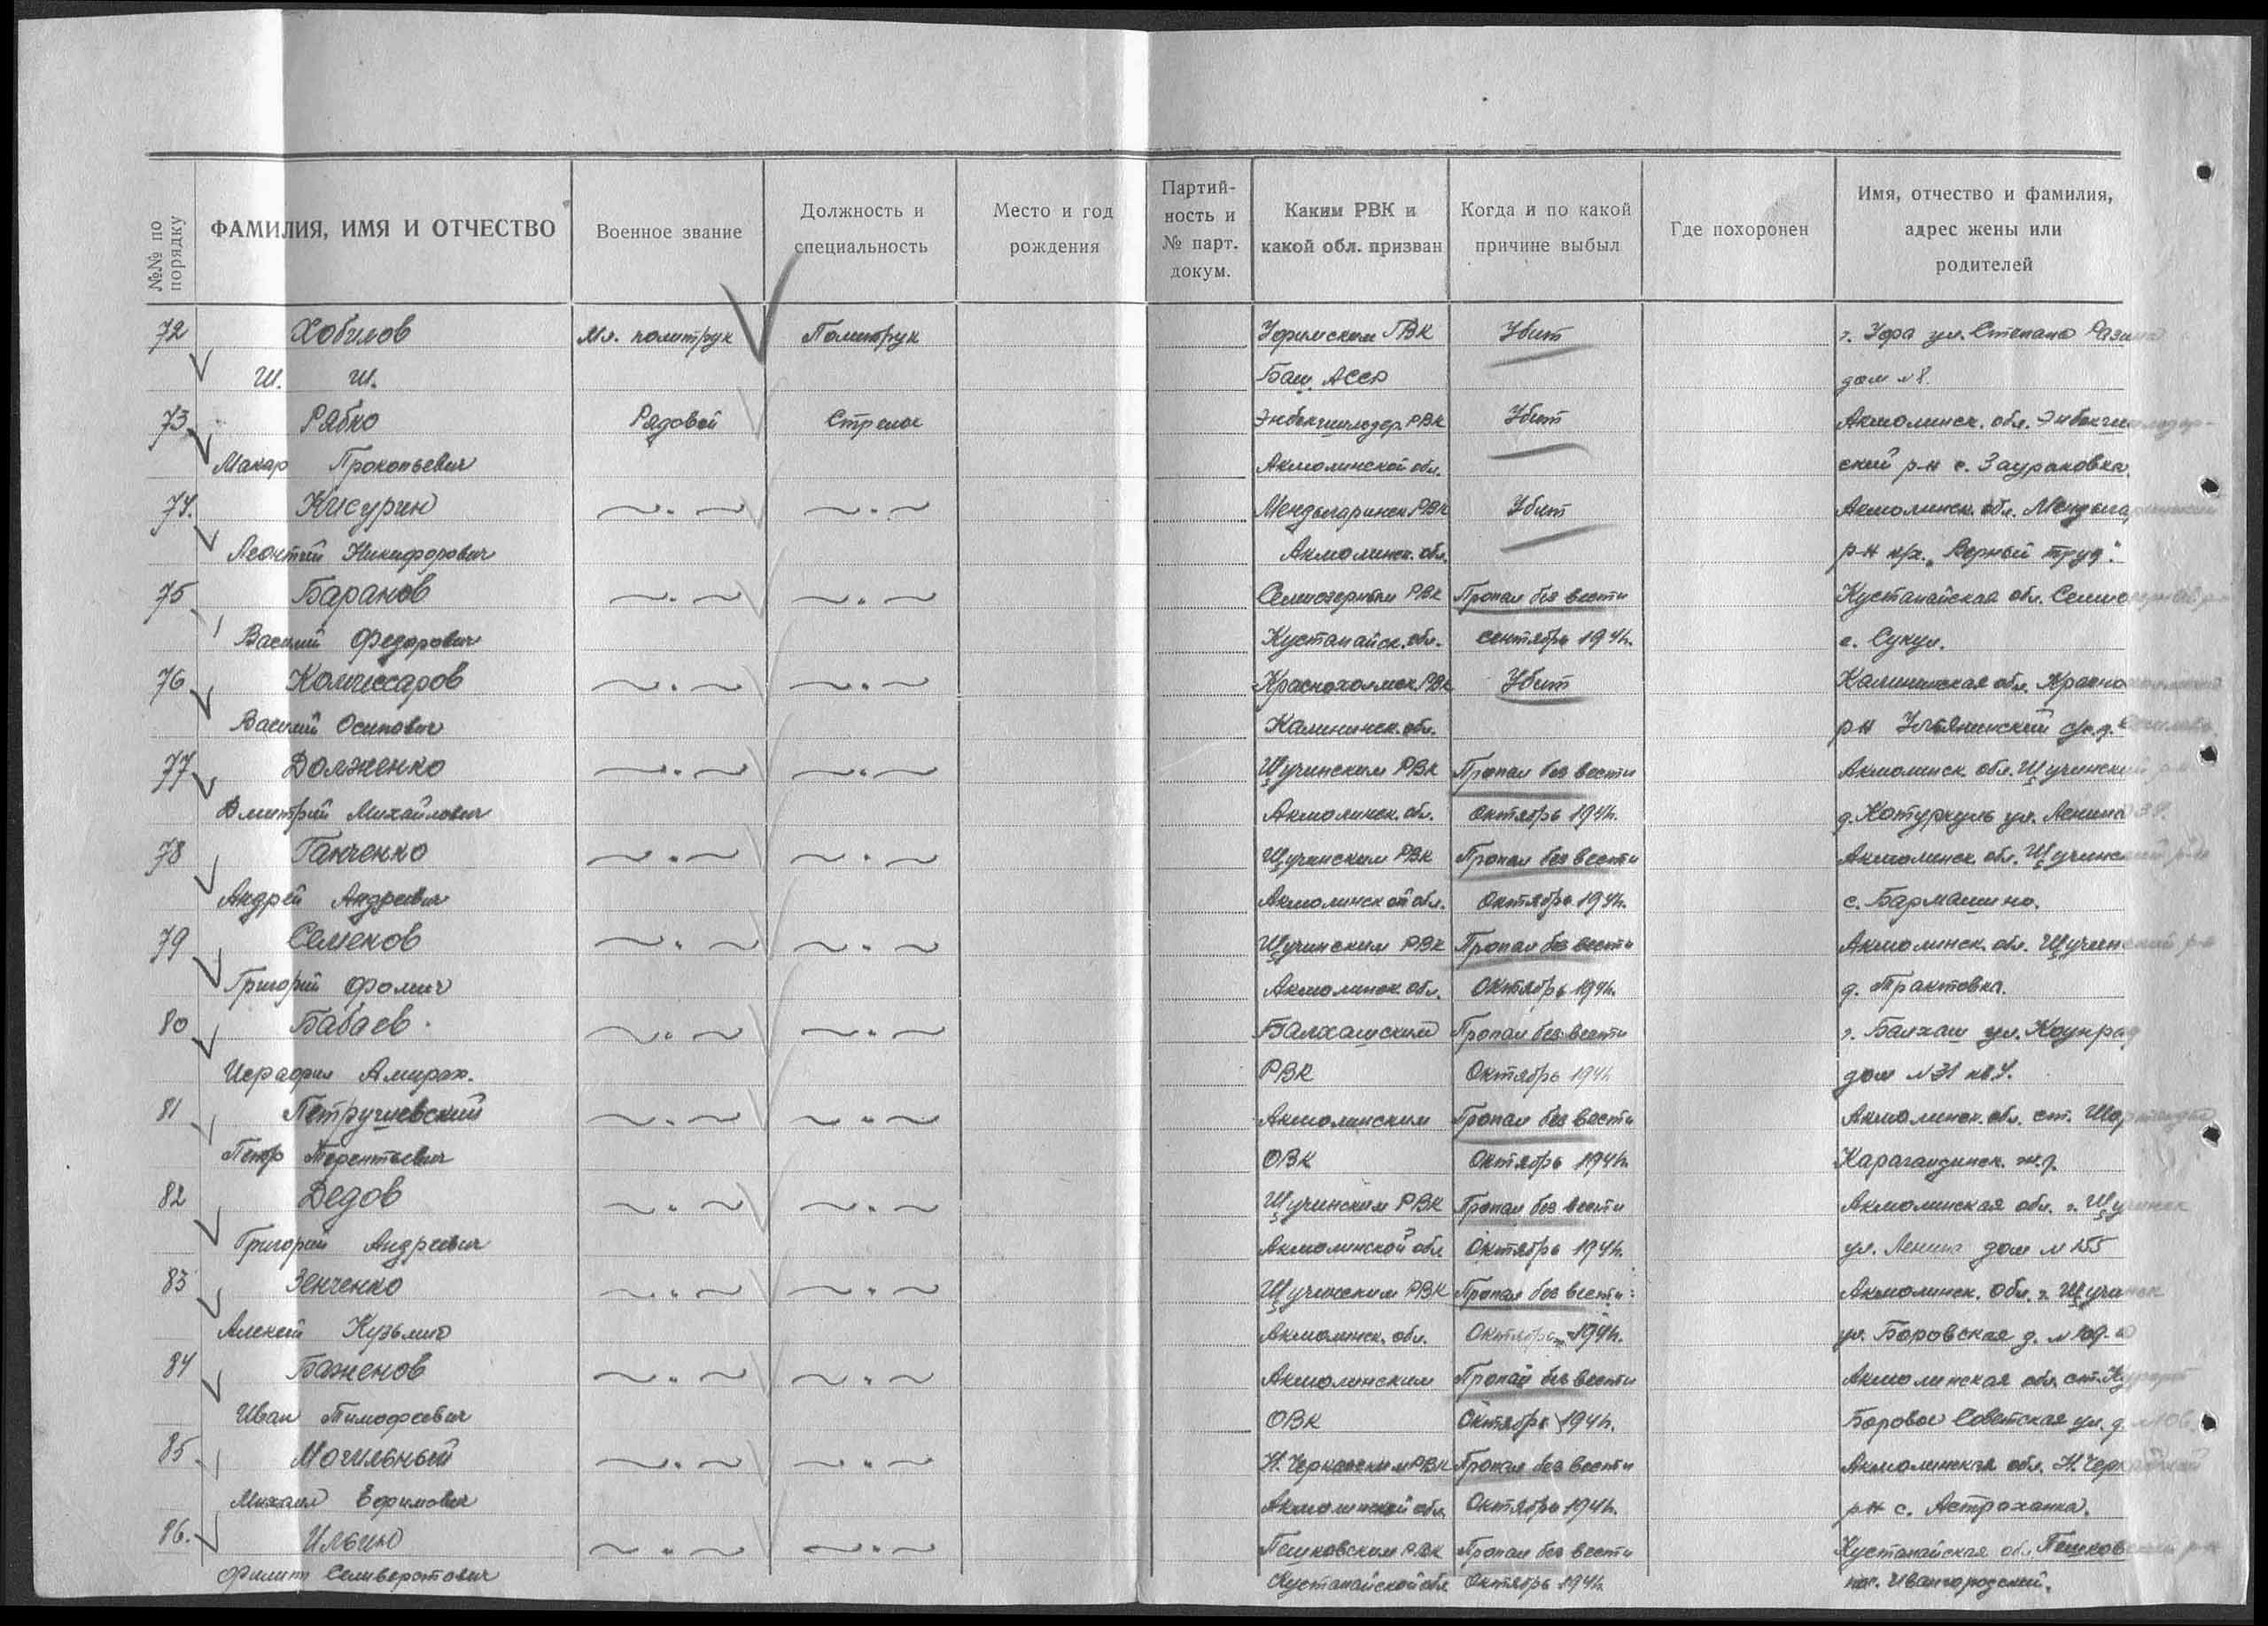 №№ по порядку
ФАМИЛИЯ, ИМЯ И ОТЧЕСТВО
Военное звание
Должность и специальность
Место и год рождения
Партий-ность и № парт. докум.
Каким РВК и какой обл. призван
Когда и по какой причине выбыл
Где похоронен
Имя, отчество и фамилия, адрес жены или родителей
72 Хобилов Мл. политрук Политрук Уфимским ГВК Убит г. Уфа ул. Степана Разина
Ш. Ш. Баш. АССР дом № 8.
73 Рябко Рядовой Стрелок Энбекшильдер. РВК Убит Акмолинск. обл. Энбекшильдер-
Макар Прокопьевич Акмолинской обл. ский р-н с. Заураковка
74. Кисурин Мендыгаринск РВК Убит Акмолинск. обл. Мендыгаринский
Леонтий Никифорович Акмолинск. обл. р-н к/х. „Верный труд".
75 Баранов Семиозерным РВК Пропал без вести Кустанайская обл. Семиозерный р-н
Василий Федорович Кустанайск. обл. сентябрь 1941г. с. Сукул.
76 Комиссаров Краснохолмск РВК Убит Калининская обл. Краснохолмский
Василий Осипович Калининск. обл. р-н с/с. д.
77 Долженко Щучинским РВК Пропал без вести Акмолинск. обл. Щучинский р-н
Дмитрий Михайлович Акмолинск. обл. Октябрь 1941г. д. Котуркуль ул. Ленина 38.
78 Ганченко Щучинским РВК Пропал без вести Акмолинск. обл. Щучинский р-н
Андрей Андреевич Акмолинской обл. Октябрь 1941г. с. Бармашино.
79 Семенов Щучинским РВК Пропал без вести Акмолинск. обл. Щучинский р-н
Григорий Фомич Акмолинск. обл. Октябрь 1941г. д. Трактовка.
80 Бабаев Балхашским Пропал без вести г. Балхаш ул. Коунрад
Исрафил Амирах. РВК Октябрь 1941г. дом № 31 кв. 4.
81 Петрушевский Акмолинским Пропал без вести Акмолинск. обл. ст. Шортанды
Петр Терентьевич ОВК Октябрь 1941г. Карагандинск. ж.д.
82 Дедов Щучинским РВК Пропал без вести Акмолинская обл. г. Щучинск
Григорий Андреевич Акмолинской обл Октябрь 1941г. ул. Ленина дом № 155
83 Зенченко Щучинским РВК Пропал без вести Акмолинск. обл. г. Щучинск
Алексей Кузьмич Акмолинск. обл. Октябрь 1941г. ул. Боровская д. № 109
84 Баженов Акмолинским Пропал без вести Акмолинская обл. ст. Курорт
Иван Тимофеевич ОВК Октябрь 1941г. Боровое Советская ул. д.
85 Могильный Н. Черкасским РВК Пропал без вести Акмолинская обл. Н. Черкасский
Михаил Ефимович Акмолинской обл. Октябрь 1941г. р-н с. Астраханка.
86. Ильин Пешковским РВК Пропал без вести Кустанайская обл. Пешковский р-н
Филипп Селиверстович Кустанайской обл Октябрь 1941г. пос. Ивангородский.